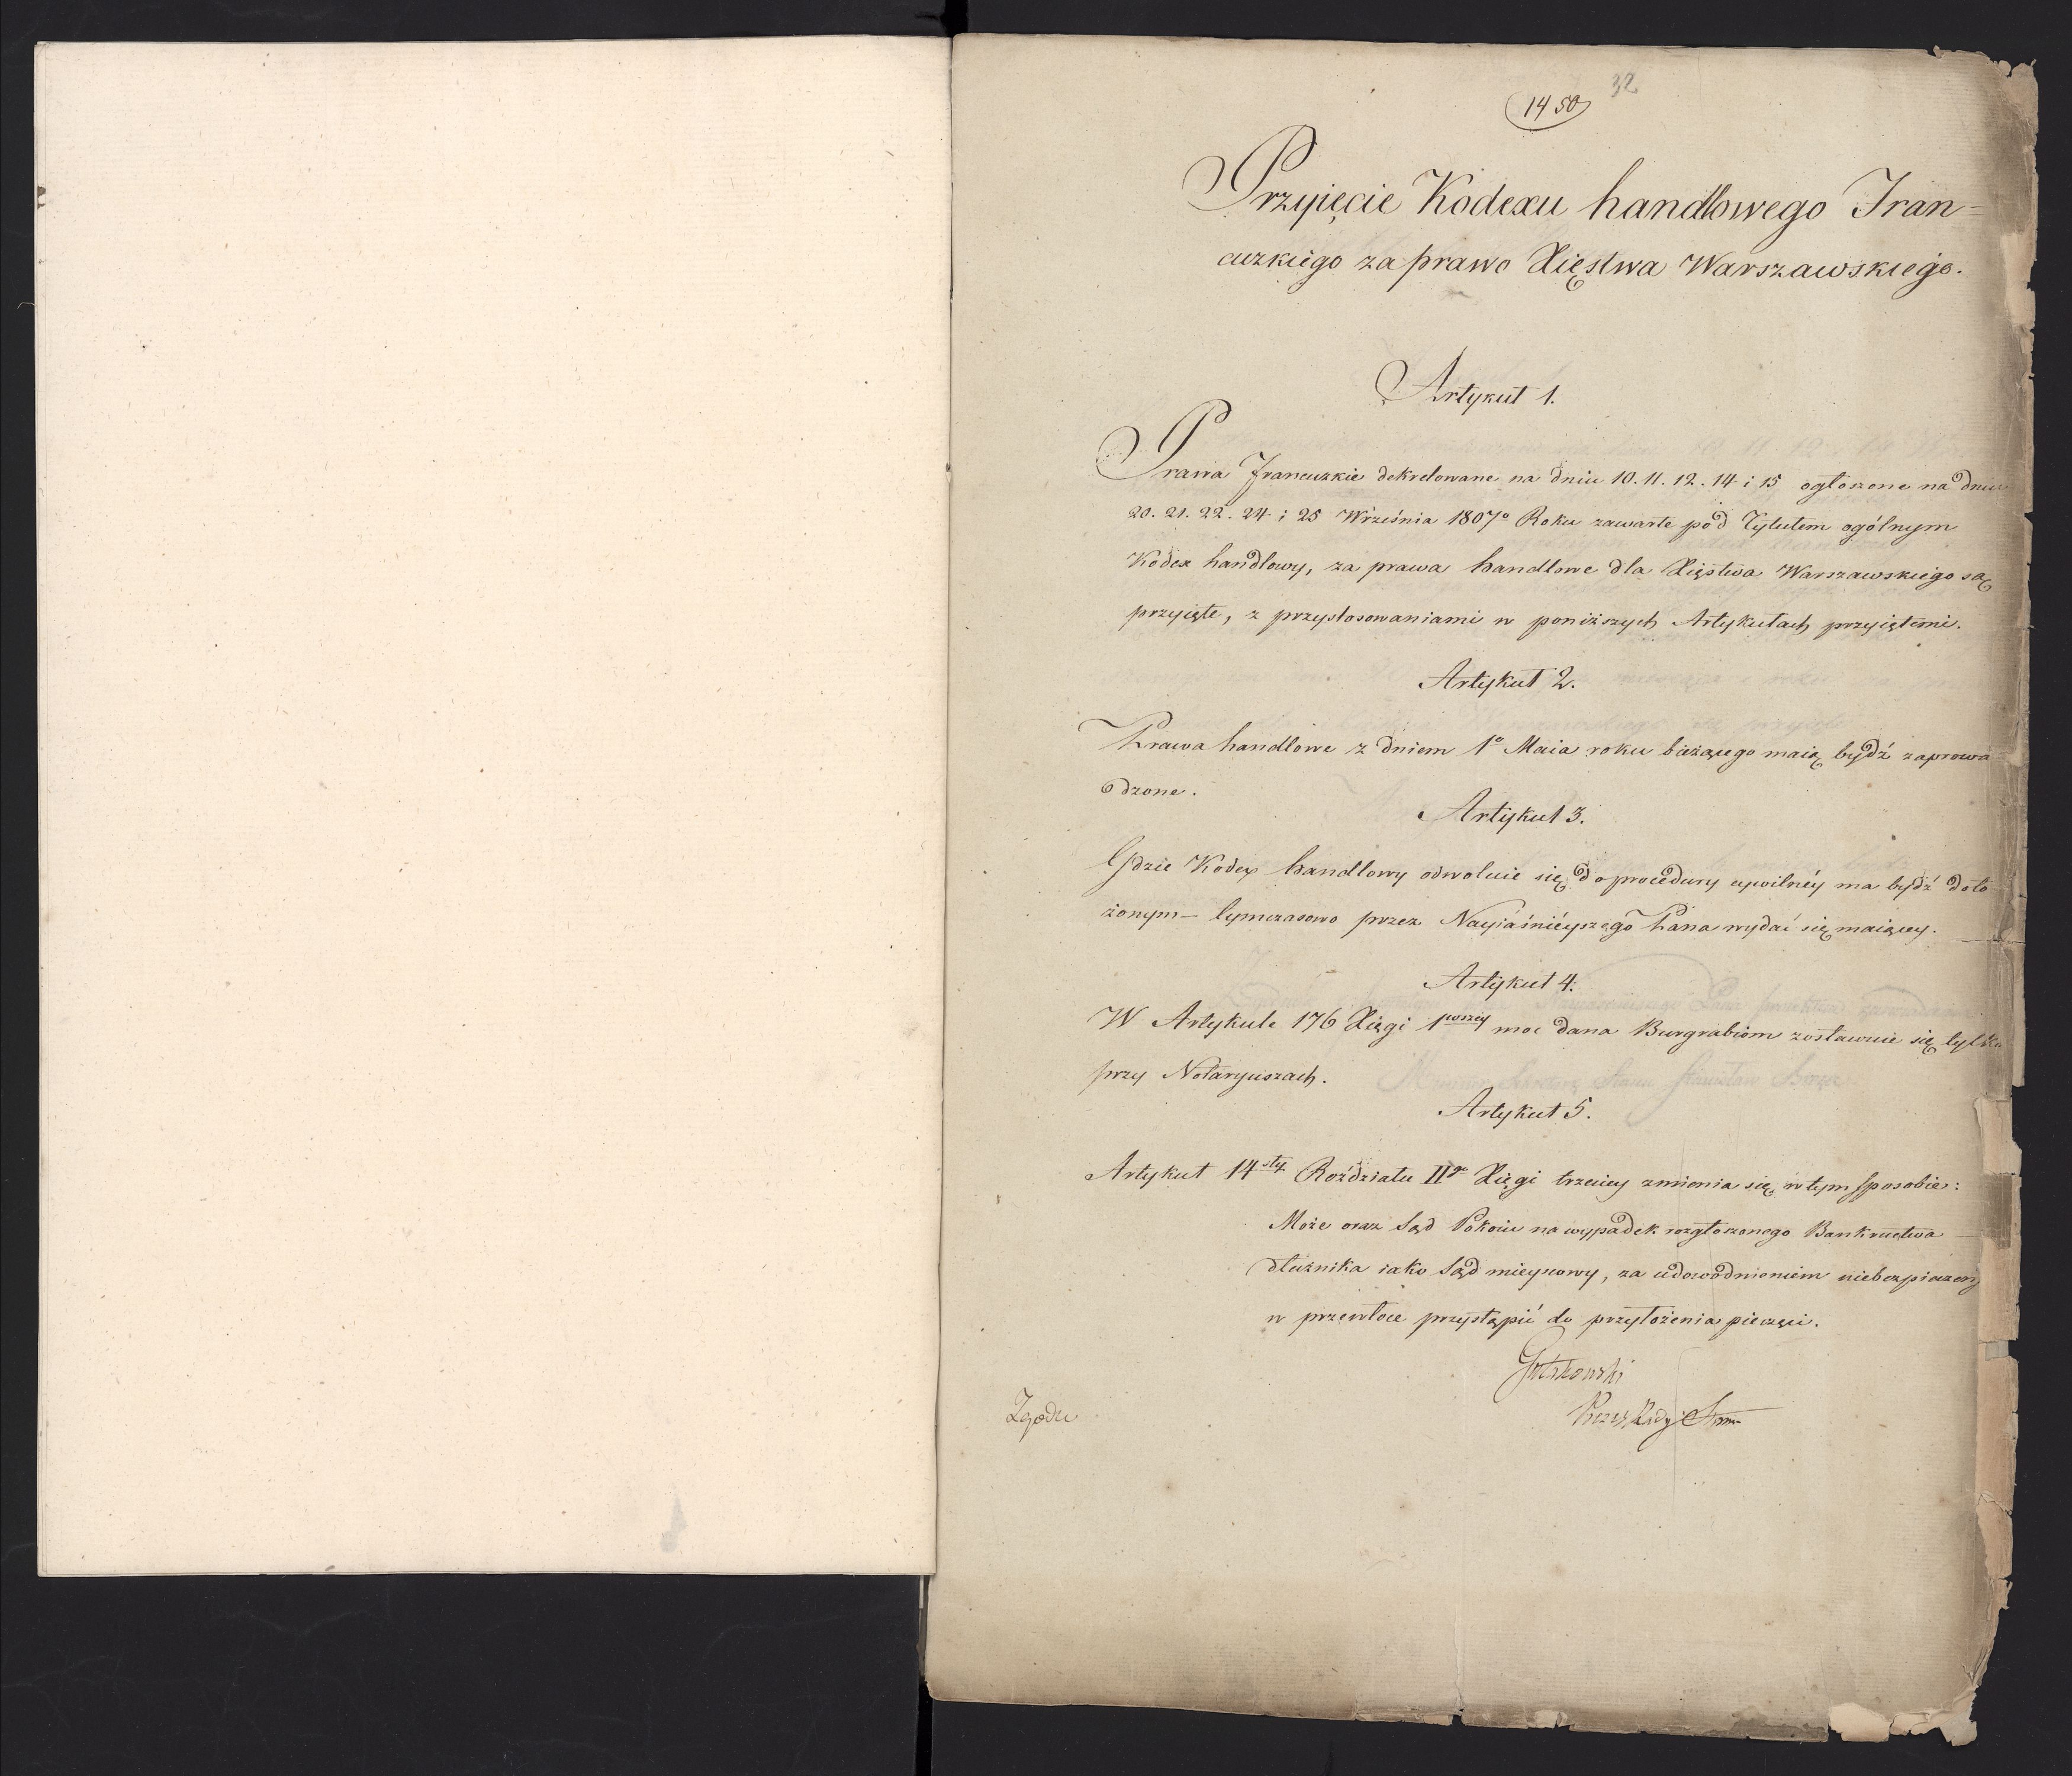 32
1450
Przyięcie Kodexu handlowego Fran=
cuzkiego za prawo Xięstwa Warszawskiego.
Artykuł 1.
Prawa Francuzkie dekretowane na dniu 10. 11. 12. 14 i 15 ogłoszone na dniu
20. 21. 22. 24 i 25 Września 1807º Roku zawarte pod Tytułem ogólnym
Kodex handlowy, za prawa handlowe dla Xięstwa Warszawskiego są
przyięte, z przystosowaniami w poniższych Artykułach przyiętemi.
Artykuł 2.
Prawa handlowe z dniem 1º Maia roku bieżącego maią bydź zaprowa
dzone.
Artykuł 3.
Gdzie Kodex handlowy odwołuie się do procedury cywilnéy ma bydź doło
żonym — tymczasowo przez Nayiaśnieyszego Pana wydać się maiącey.
Artykuł 4.
W Artykule 176 Xięgi 1wszey moc dana Burgrabiom zostawuie się tylko
przy Notaryuszach.
Artykuł 5.
Artykuł 14sty Rozdziału IIgo Xięgi trzeciey zmienia się w tym sposobie:
Może oraz Sąd Pokoiu na wypadek rozgłoszonego Bankructwa
dłużnika iako Sąd mieyscowy, za udowodnieniem niebezpieczeń
w przewłoce przystąpić do przyłożenia pieczęci.
Gutakowski
Prezes Rady Stanu
Zgodu